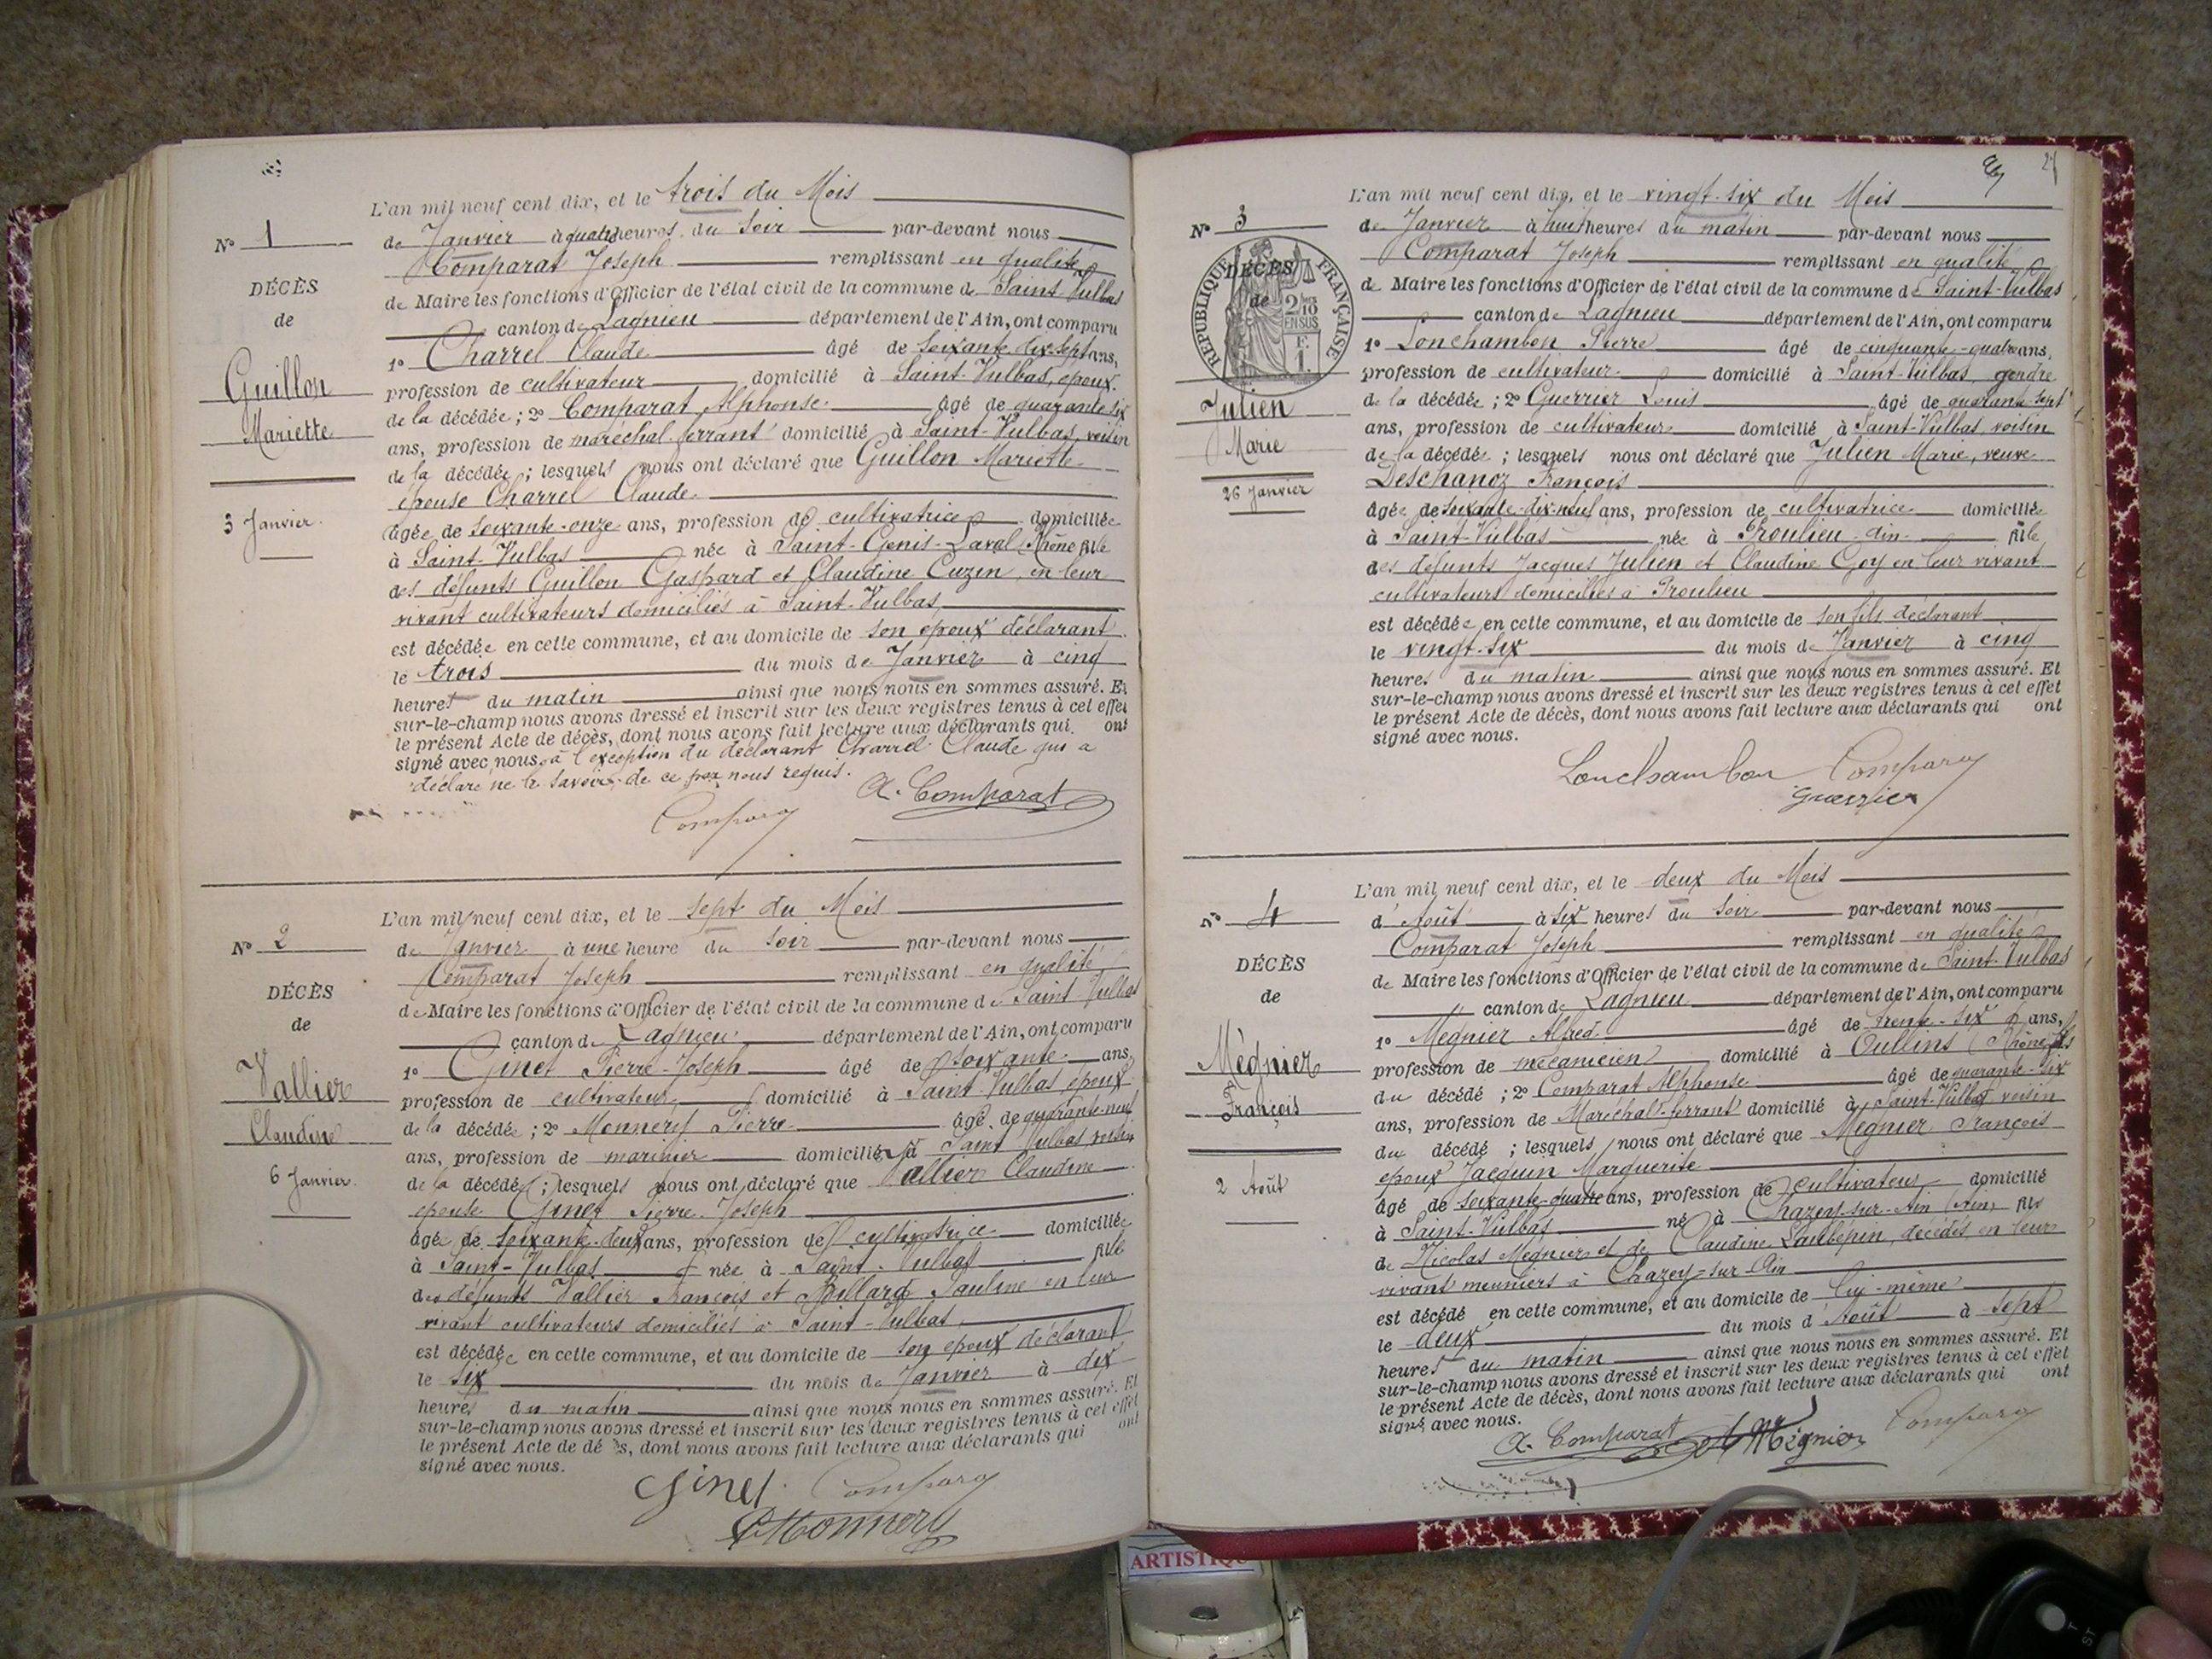 L'an mil neuf cent dix, et le trois du Mois
N° 1
de Janvier à quatre heures du Soir par-devant nous
Comparat Joseph remplissant en qualité
DÉCÈS
de Maire les fonctions d'Officier de l'état civil de la commune de Saint-Vulbas
de
canton de Lagnieu département de l'Ain, ont comparu
1° Charrel Claude âgé de soixante-dix-sept ans,
Guillon
profession de cultivateur domicilié à Saint-Vulbas, époux
de la décédée ; 2° Comparat Alphonse âgé de quarante-six
Mariette
ans, profession de maréchal-ferrant domicilié à Saint-Vulbas, voisin
de la décédée ; lesquels nous ont déclaré que Guillon Mariette
épouse Charrel Claude
3 Janvier
âgée de soixante-onze ans, profession de cultivatrice domiciliée
à Saint-Vulbas née à Saint-Genis-Laval (Rhône) fille
des défunts Guillon Gaspard et Claudine Cuzin, en leur
vivant cultivateurs domiciliés à Saint-Vulbas
est décédée en cette commune, et au domicile de son époux déclarant
le trois du mois de Janvier à cinq
heures du matin ainsi que nous nous en sommes assuré. Et
sur-le-champ nous avons dressé et inscrit sur les deux registres tenus à cet effet
le présent Acte de décès, dont nous avons fait lecture aux déclarants qui ont
signé avec nous, à l'exception du déclarant Charrel Claude qui a
déclaré ne le savoir, de ce par nous requis.
A. Comparat
Comparat
L'an mil neuf cent dix, et le sept du Mois
N° 2
de Janvier à une heure du Soir par-devant nous
Comparat Joseph remplissant en qualité
DÉCÈS
de Maire les fonctions d'Officier de l'état civil de la commune de Saint Vulbas
de
canton de Lagnieu département de l'Ain, ont comparu
1° Ginet Pierre-Joseph âgé de soixante ans,
Vallier
profession de cultivateur domicilié à Saint-Vulbas époux
de la décédée ; 2° Monnery Pierre âgé de quarante-neuf
Claudine
ans, profession de marinier domicilié à Saint Vulbas voisin
6 Janvier
de la décédée ; lesquels nous ont déclaré que Vallier Claudine
épouse Ginet Pierre-Joseph
âgée de soixante-deux ans, profession de cultivatrice domiciliée
à Saint-Vulbas née à Saint-Vulbas fille
des défunts Vallier François et Billard Pauline en leur
vivant cultivateurs domiciliés à Saint-Vulbas
est décédée en cette commune, et au domicile de son époux déclarant
le six du mois de Janvier à dix
heures du matin ainsi que nous nous en sommes assuré. Et
sur-le-champ nous avons dressé et inscrit sur les deux registres tenus à cet effet
le présent Acte de dé s, dont nous avons fait lecture aux déclarants qui ont
signé avec nous.
Ginet Comparat
Monnery
27
L'an mil neuf cent dix, et le vingt-six du Mois
N° 3
de Janvier à huit heures du matin par-devant nous
Comparat Joseph remplissant en qualité
RÉPUBLIQUE FRANÇAISE
DÉCÈS
de
2/10 EN SUS
F. 1.
de Maire les fonctions d'Officier de l'état civil de la commune de Saint-Vulbas
canton de Lagnieu département de l'Ain, ont comparu
1° Lonchambon Pierre âgé de cinquante-quatre ans,
profession de cultivateur domicilié à Saint-Vulbas, gendre
Julien
de la décédée ; 2° Guerrier Louis âgé de quarante-sept
ans, profession de cultivateur domicilié à Saint-Vulbas, voisin
Marie
de la décédée ; lesquels nous ont déclaré que Julien Marie, veuve
26 Janvier
Deschanoz François
âgée de soixante-dix-neuf ans, profession de cultivatrice domiciliée
à Saint-Vulbas née à Proulieu Ain fille
des défunts Jacques Julien et Claudine Goy en leur vivant
cultivateurs domiciliés à Proulieu
est décédée en cette commune, et au domicile de son fils déclarant
le vingt-six du mois de Janvier à cinq
heures du matin ainsi que nous nous en sommes assuré. Et
sur-le-champ nous avons dressé et inscrit sur les deux registres tenus à cet effet
le présent Acte de décès, dont nous avons fait lecture aux déclarants qui ont
signé avec nous.
Lonchambon Comparat
Guerrier
L'an mil neuf cent dix, et le deux du Mois
N° 4
d'Août à six heures du Soir par-devant nous
Comparat Joseph remplissant en qualité
DÉCÈS
de Maire les fonctions d'Officier de l'état civil de la commune de Saint-Vulbas
de
canton de Lagnieu département de l'Ain, ont comparu
1° Mégnier Alfred âgé de trente-six ans,
Mégnier
profession de mécanicien domicilié à Oullins (Rhône) fils
du décédé ; 2° Comparat Alphonse âgé de quarante-six
François
ans, profession de Maréchal-ferrant domicilié à Saint-Vulbas voisin
du décédé ; lesquels nous ont déclaré que Mégnier François
époux Jacquin Marguerite
2 Août
âgé de soixante-quatre ans, profession de cultivateur domicilié
à Saint-Vulbas né à Chazey-sur-Ain (Ain) fils
de Nicolas Mégnier et de Claudine Laubépin, décédés en leur
vivant meuniers à Chazey-sur-Ain
est décédé en cette commune, et au domicile de lui-même
le deux du mois d'Août à sept
heures du matin ainsi que nous nous en sommes assuré. Et
sur-le-champ nous avons dressé et inscrit sur les deux registres tenus à cet effet
le présent Acte de décès, dont nous avons fait lecture aux déclarants qui ont
signé avec nous.
A. Comparat Mégnier Comparat
ARTISTIQU
T
ST